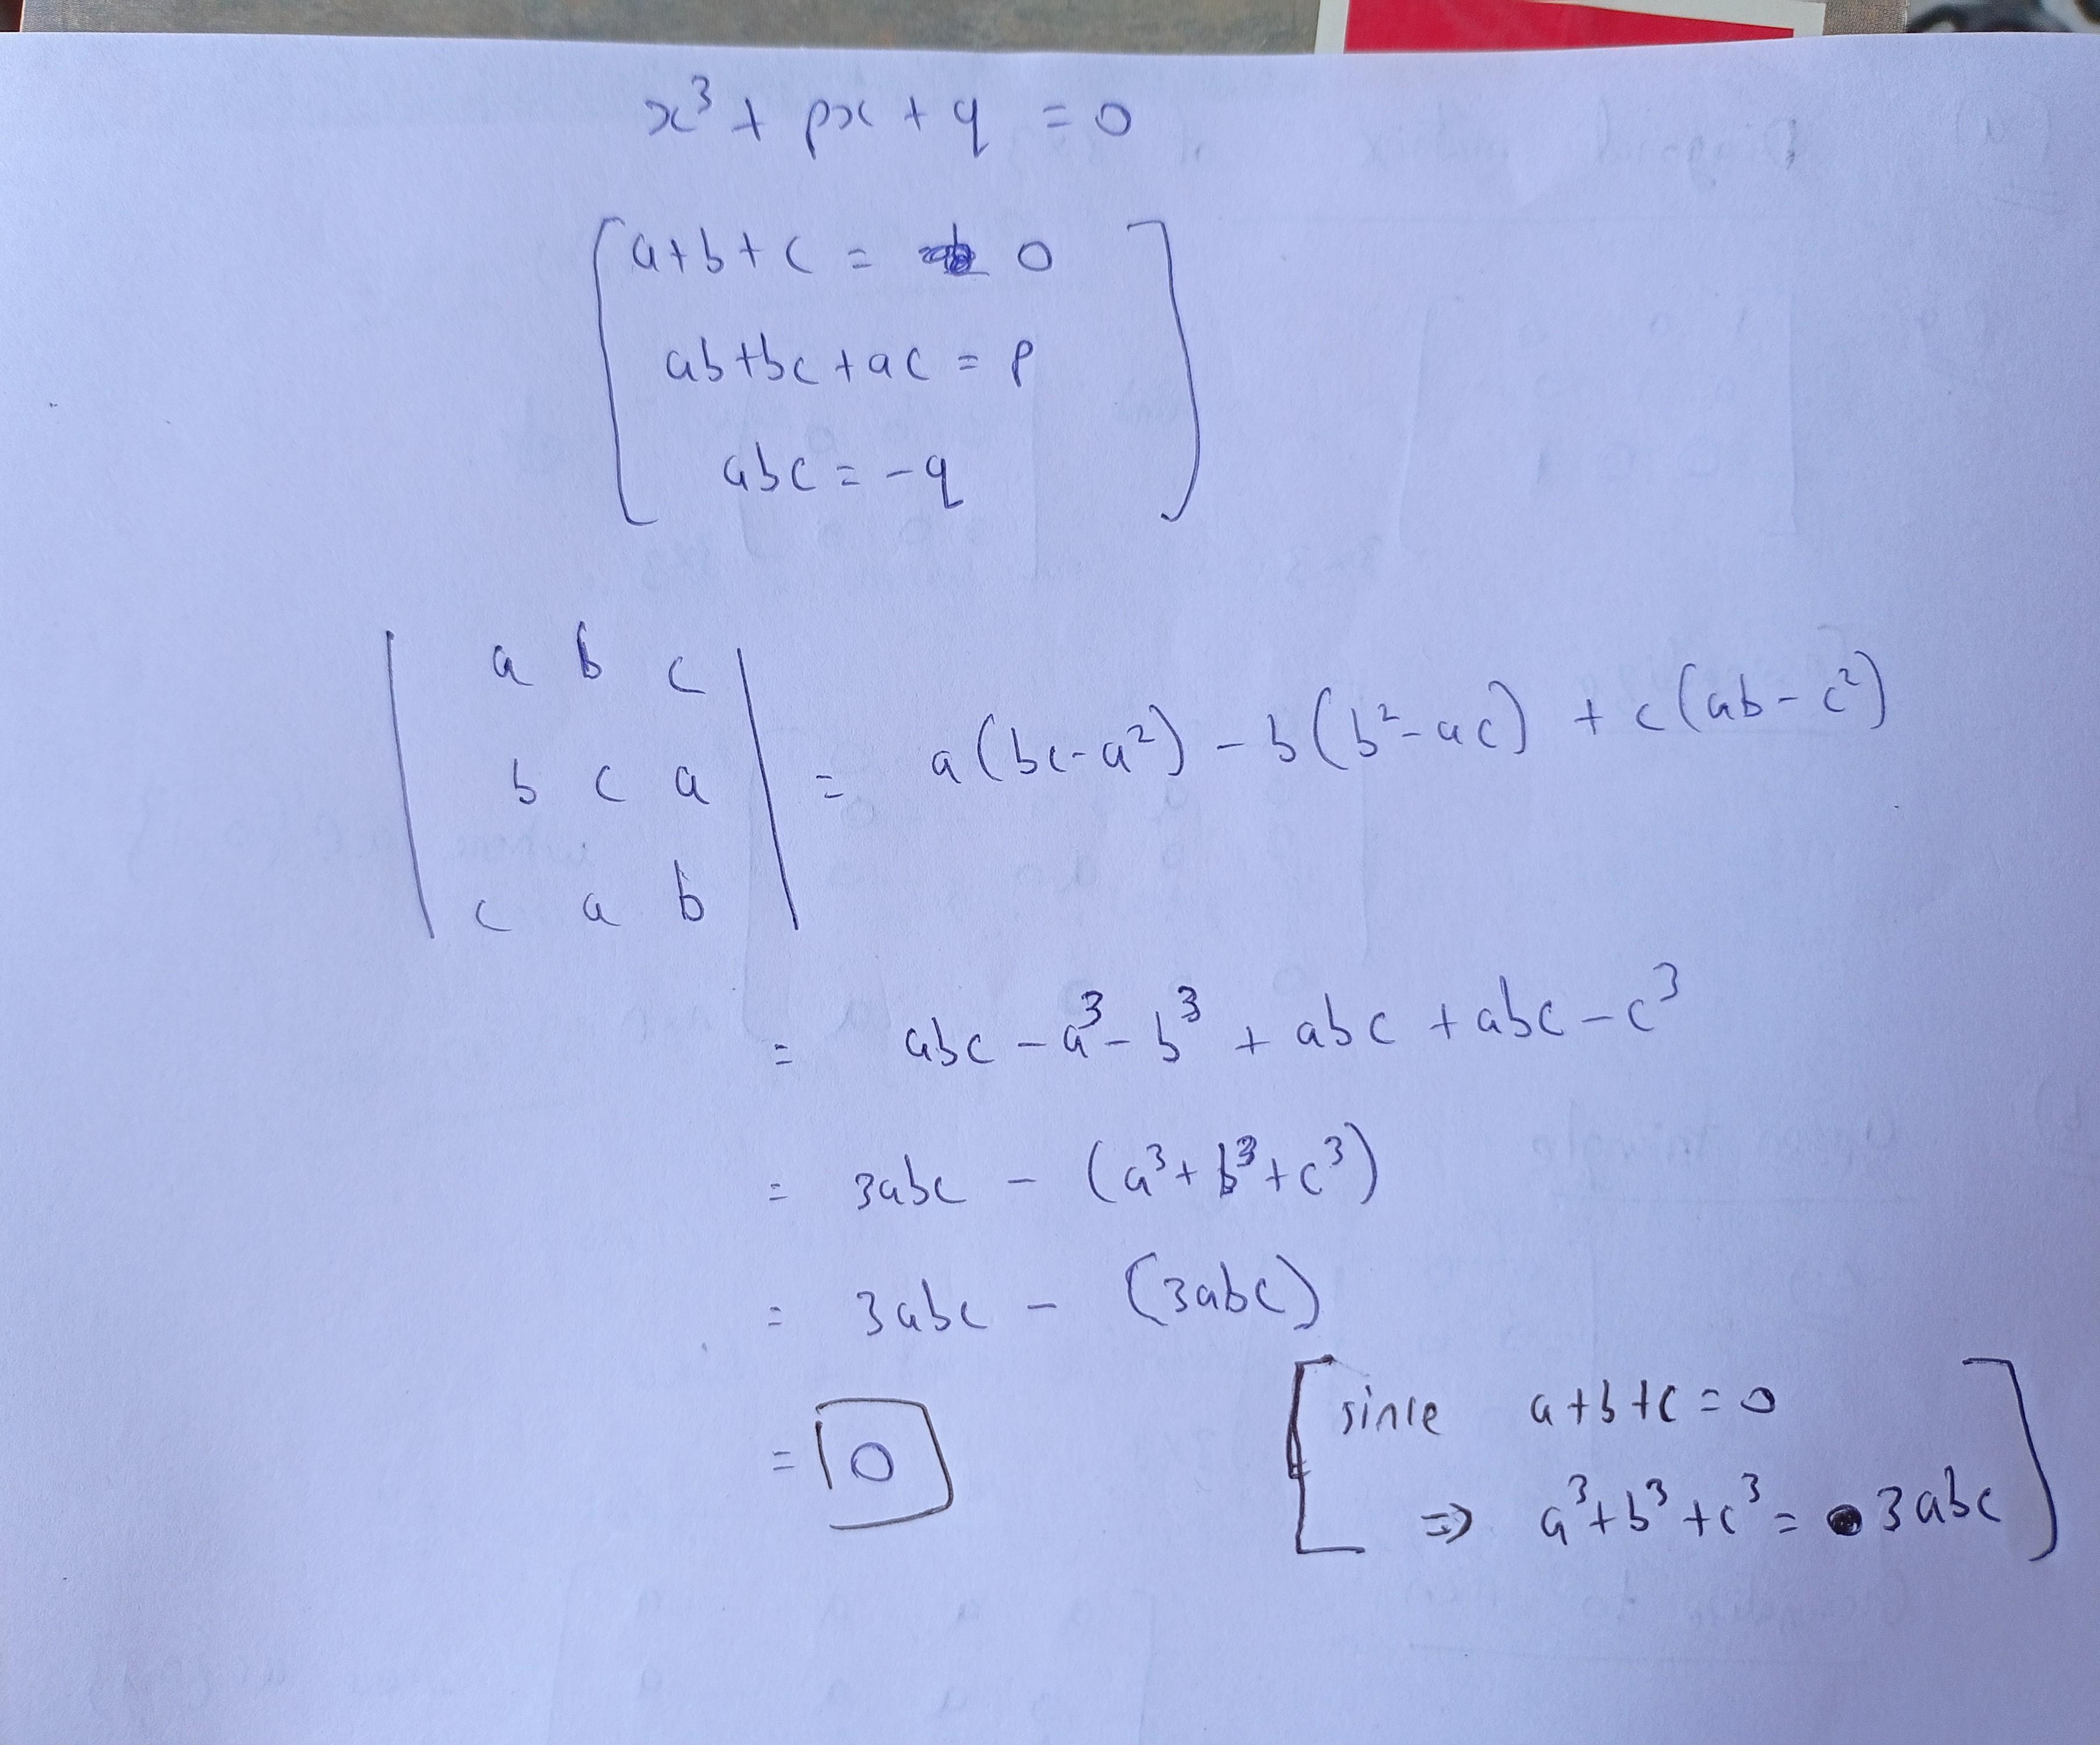 x³ + px + q = 0
a+b+c = 0
ab+bc+ac = p
abc = -q
| a b c |
| b c a | = a(bc-a²) - b(b²-ac) + c(ab-c²)
| c a b |
= abc - a³ - b³ + abc + abc - c³
= 3abc - (a³+b³+c³)
= 3abc - (3abc)
= 0
[since a+b+c=0
⇒ a³+b³+c³ = 3abc]